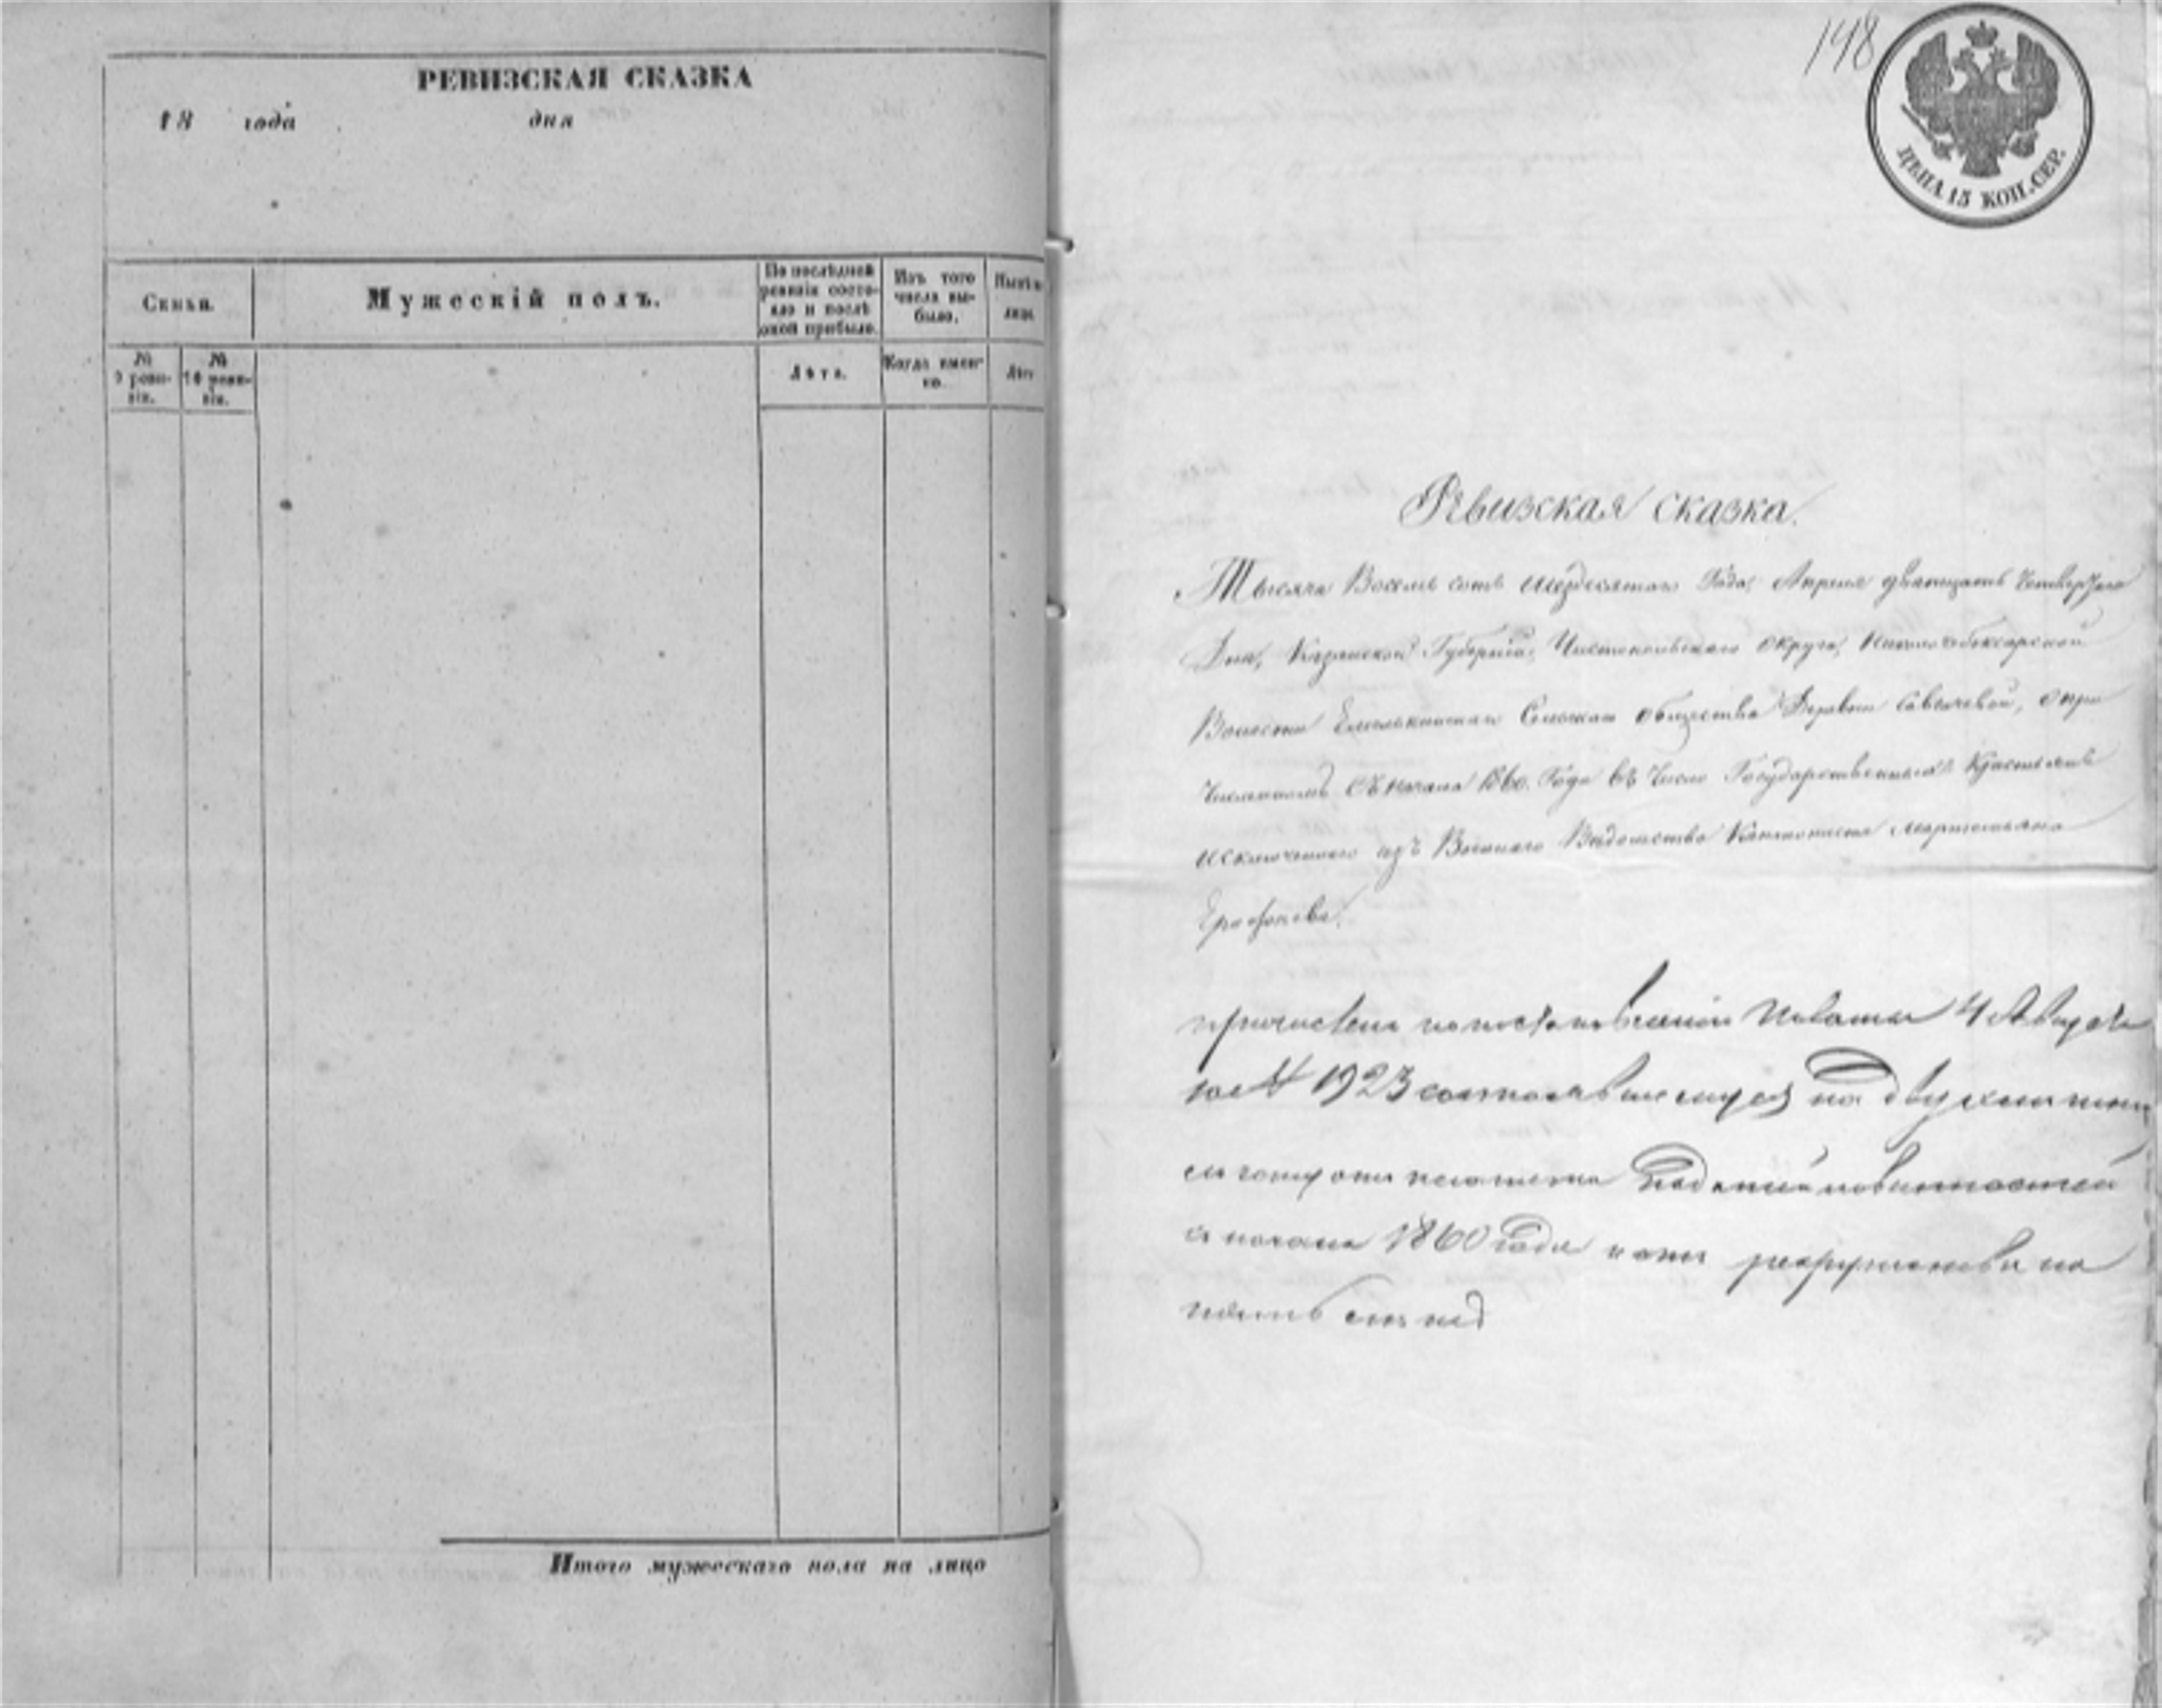 РЕВИЗСКАЯ СКАЗКА
18 года дня
Семьи.
Мужескій полъ.
По послѣдней ревизіи состояло и послѣ оной прибыло.
Изъ того числа выбыло.
Нынѣ на лицо.
№ 9 ревизіи.
№ 10 ревизіи.
Лѣта.
Когда именно.
Лѣта
Итого мужескаго пола на лицо
148
ЦѢНА 15 КОП. СЕР.
Ревизская сказка.
Тысяча Восемь сотъ шездесятаго Года, Апреля дватцать четвертаго
Дня, Казанской Губерніи, Чистопольскаго округа, Никольской
Волости Сельскаго общества Деревни Савгачевой, о при
численномъ съ начала 1860. Года въ число Государственныхъ Крестьянъ
исключеннаго изъ Военнаго Вѣдомства Кантониста Мартемьяна
Ерофеева.
причислен по постановлению Палаты 4 Августа
№ 1923 состоявшемуся на
платежа Податей и повинностей
с начала 1860 года а от рекрутства на